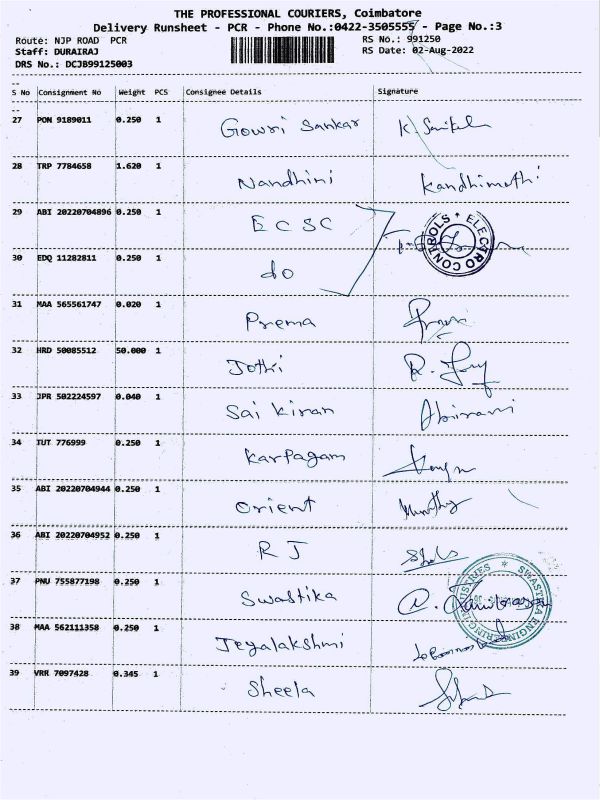 THE PROFESSIONAL COURIERS, Coimbatore
Delivery Runsheet - PCR - Phone No.:0422-3505555 - Page No.:3
Route: NJP ROAD PCR RS No.: 991250
Staff: DURAIRAJ RS Date: 02-Aug-2022
DRS No.: DCJB99125003
S No Consignment No Weight PCS Consignee Details Signature
27 PON 9189011 0.250 1 Gowri Sankar
28 TRP 7784658 1.620 1 Nandhini Kandhimathi
29 ABI 20220704896 0.250 1 E C S C
ELECTRO CONTROLS
30 EDQ 11282811 0.250 1 do
31 MAA 565561747 0.020 1 Prema
32 HRD 50085512 50.000 1 Jothi
33 JPR 502224597 0.040 1 Sai Kiran Abirami
34 TUT 776999 0.250 1 Karpagam
35 ABI 20220704944 0.250 1 Orient
36 ABI 20220704952 0.250 1 R J
37 PNU 755877198 0.250 1 Swastika
38 MAA 562111358 0.250 1 Jeyalakshmi
39 VRR 7097428 0.345 1 Sheela